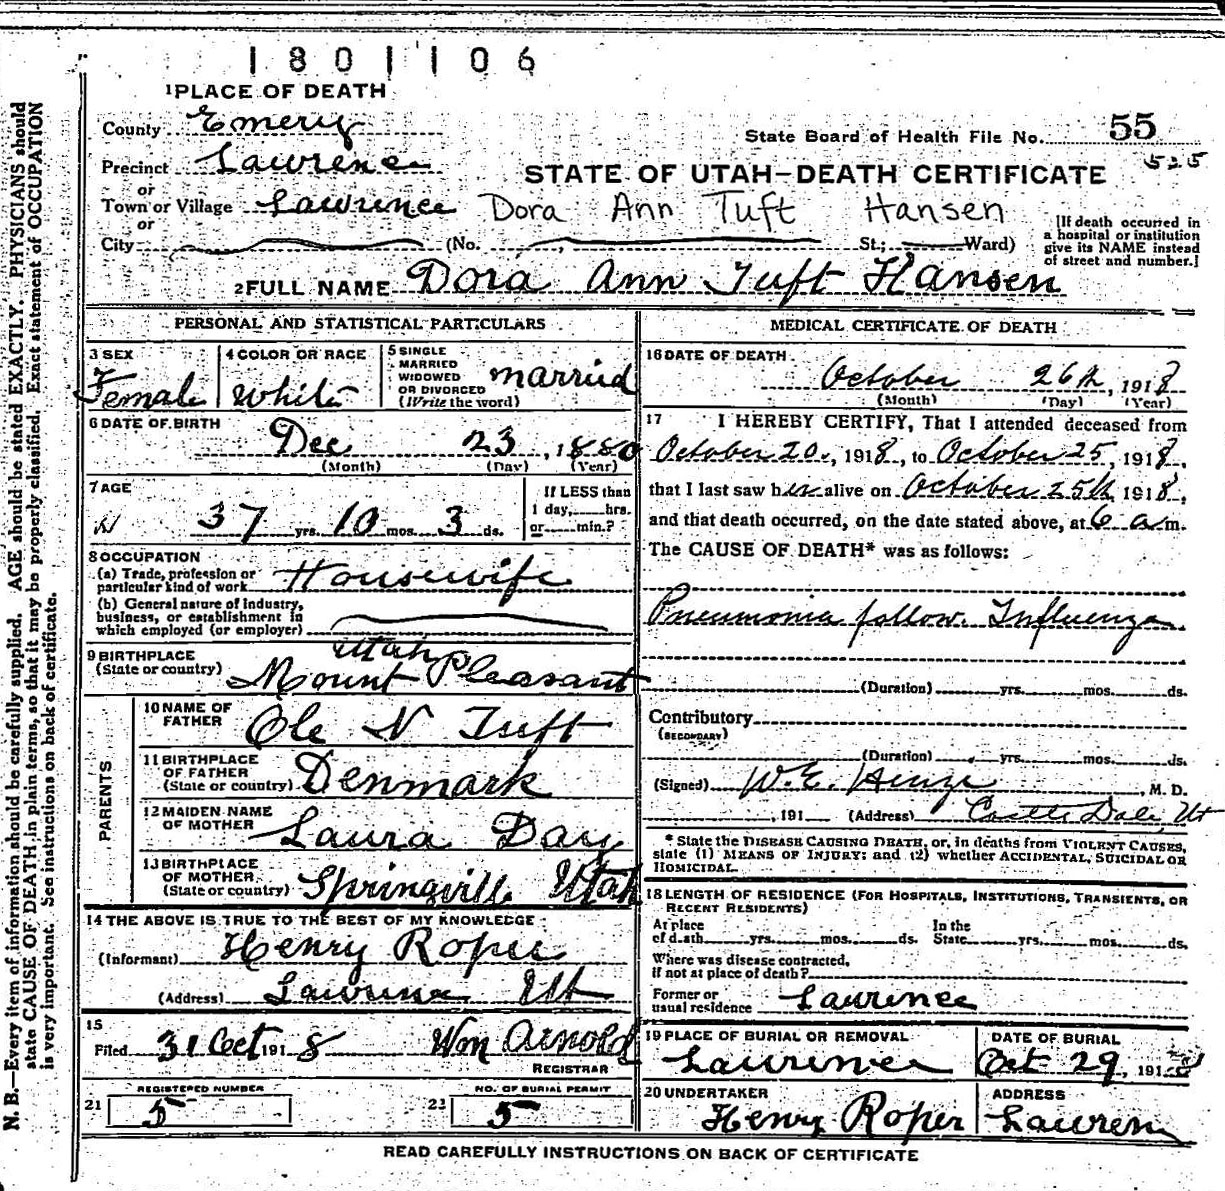 1801106
1 PLACE OF DEATH
County Emery
State Board of Health File No. 55
Precinct Lawrence
525
STATE OF UTAH—DEATH CERTIFICATE
or
Town or Village Lawrence Dora Ann Tuft Hansen
or
City (No. St; Ward)
[If death occurred in
a hospital or institution
give its NAME instead
of street and number.]
2 FULL NAME Dora Ann Tuft Hansen
PERSONAL AND STATISTICAL PARTICULARS
3 SEX
Female
4 COLOR OR RACE
White
5 SINGLE
MARRIED
WIDOWED
OR DIVORCED
(Write the word)
married
6 DATE OF BIRTH
Dec 23, 1880
(Month) (Day) (Year)
7 AGE
37 yrs. 10 mos. 3 ds.
If LESS than
1 day, hrs.
or min.?
8 OCCUPATION
(a) Trade, profession or
particular kind of work
Housewife
(b) General nature of industry,
business, or establishment in
which employed (or employer)
9 BIRTHPLACE
(State or country)
Utah
Mount Pleasant
PARENTS
10 NAME OF
FATHER
Ole N Tuft
11 BIRTHPLACE
OF FATHER
(State or country)
Denmark
12 MAIDEN NAME
OF MOTHER
Laura Day
13 BIRTHPLACE
OF MOTHER
(State or country)
Springville Utah
14 THE ABOVE IS TRUE TO THE BEST OF MY KNOWLEDGE
(Informant) Henry Roper
(Address) Lawrence Ut
15
Filed 31 Oct 1918 Wm Arnold
REGISTRAR
REGISTERED NUMBER
21 5
NO. OF BURIAL PERMIT
22 5
MEDICAL CERTIFICATE OF DEATH
16 DATE OF DEATH
October 26th, 1918
(Month) (Day) (Year)
17 I HEREBY CERTIFY, That I attended deceased from
October 20, 1918, to October 25, 1918,
that I last saw her alive on October 25th 1918,
and that death occurred, on the date stated above, at 6 a.m.
The CAUSE OF DEATH* was as follows:
Pneumonia follow. Influenza
(Duration) yrs. mos. ds.
Contributory
(SECONDARY)
(Duration) yrs. mos. ds.
(Signed) W.E. , M. D.
, 191 (Address) Castle Dale, Ut
* State the DISEASE CAUSING DEATH, or, in deaths from VIOLENT CAUSES,
state (1) MEANS OF INJURY: and (2) whether ACCIDENTAL, SUICIDAL OR
HOMICIDAL.
18 LENGTH OF RESIDENCE (FOR HOSPITALS, INSTITUTIONS, TRANSIENTS, OR
RECENT RESIDENTS)
At place
of death yrs. mos. ds.
In the
State yrs. mos. ds.
Where was disease contracted,
if not at place of death?
Former or
usual residence
Lawrence
19 PLACE OF BURIAL OR REMOVAL
Lawrence
DATE OF BURIAL
Oct 29, 1918
20 UNDERTAKER
Henry Roper
ADDRESS
Lawrence
READ CAREFULLY INSTRUCTIONS ON BACK OF CERTIFICATE
N. B.—Every item of information should be carefully supplied. AGE should be stated EXACTLY. PHYSICIANS should
state CAUSE OF DEATH in plain terms, so that it may be properly classified. Exact statement of OCCUPATION
is very important. See instructions on back of certificate.